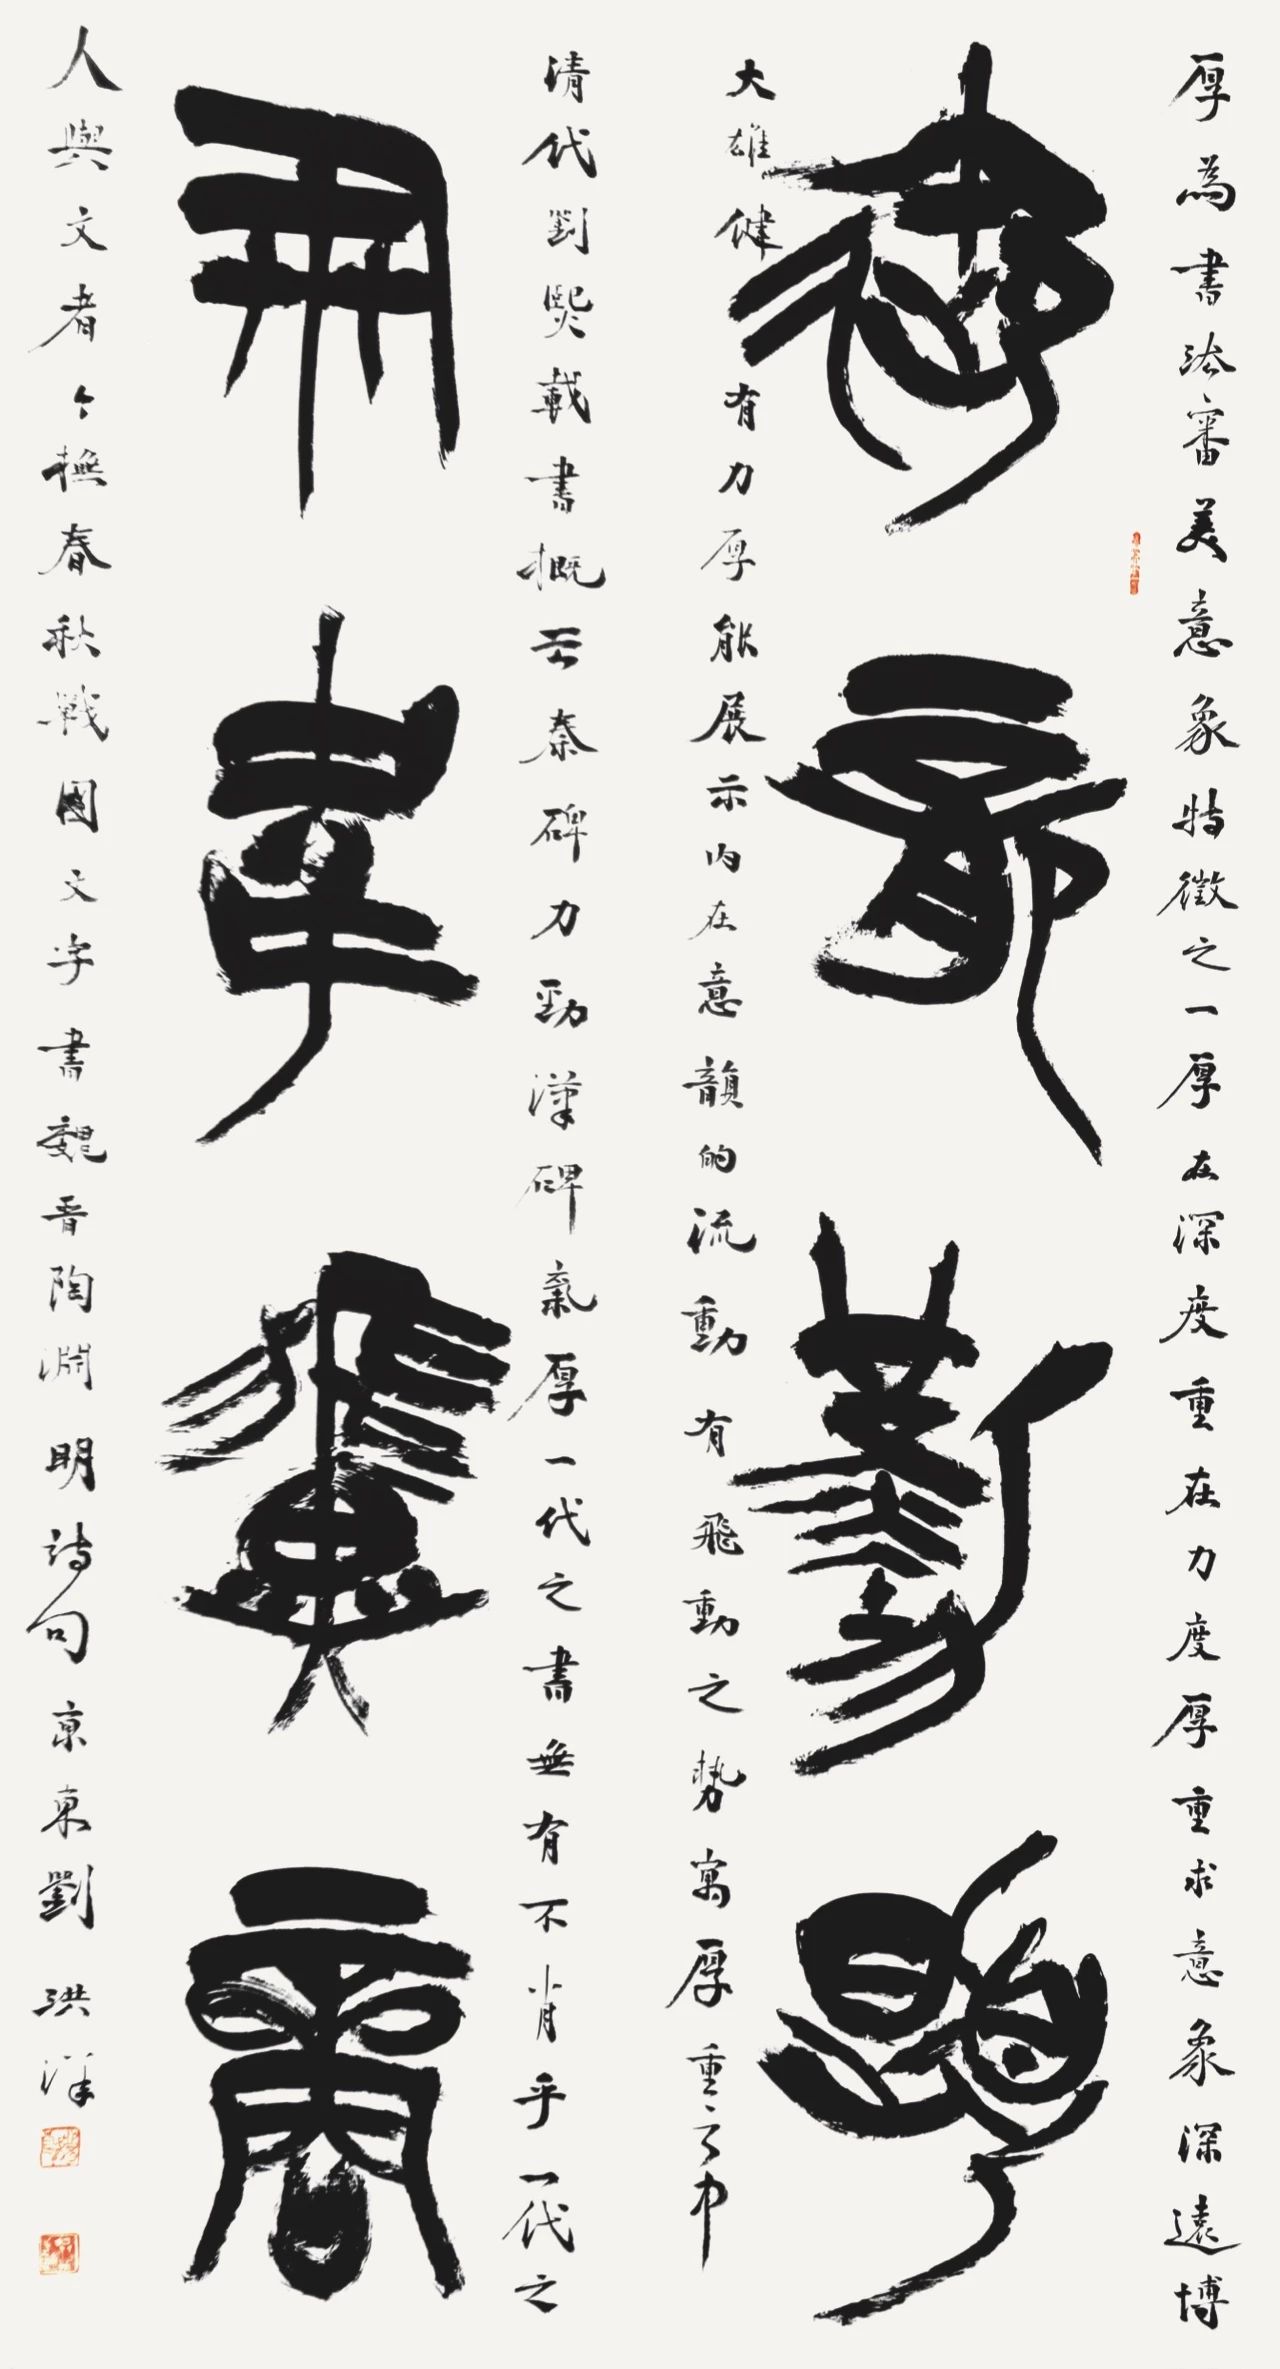 厚為書法審美意象特徵之一厚在深度重在力度厚重求意象深遠博
御龍勤夏
大雄健有力厚能展示內在意韻的流動有飛動之勢寓厚重之中
清代劉熙載書概云秦碑力勁漢碑氣厚一代之書無有不肖乎一代之
豕韋翼商
人與文者今橅春秋戰國文字書魏晉陶淵明詩句京東劉洪洋